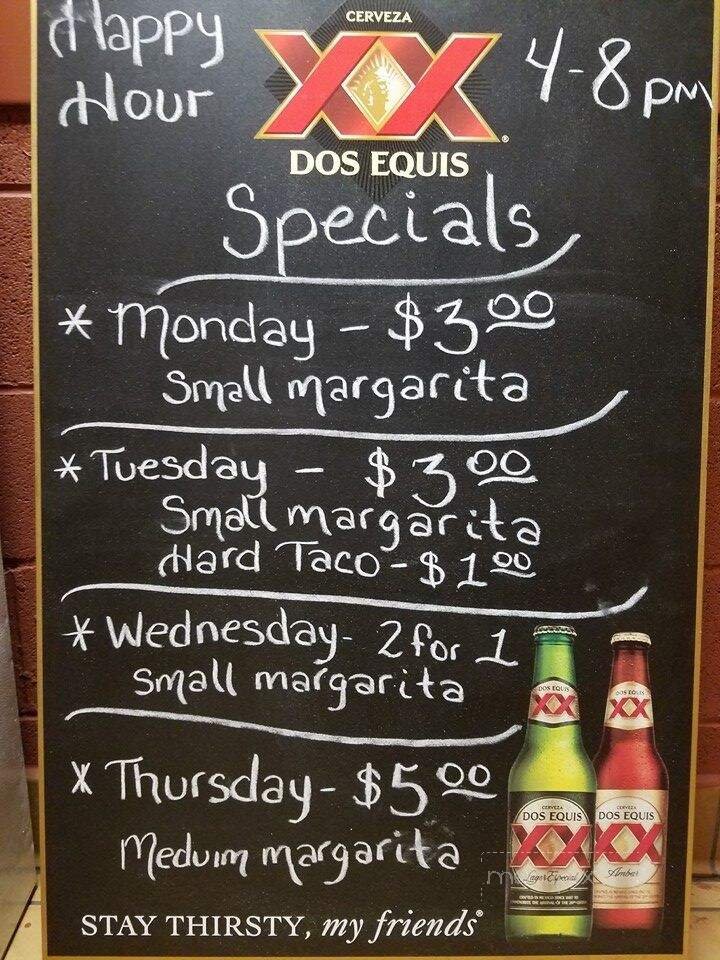 Happy
CERVEZA
4-8 pm
Hour
XX
DOS EQUIS
Specials
* Monday - $3.00
Small margarita
* Tuesday - $3.00
Small margarita
Hard Taco - $1.00
* Wednesday - 2 for 1
Small margarita
* Thursday - $5.00
Meduim margarita
DOS EQUIS
XX
DOS EQUIS
XX
CERVEZA
DOS EQUIS
XX
Lager Especial
CERVEZA
DOS EQUIS
XX
Ambar
STAY THIRSTY, my friends®